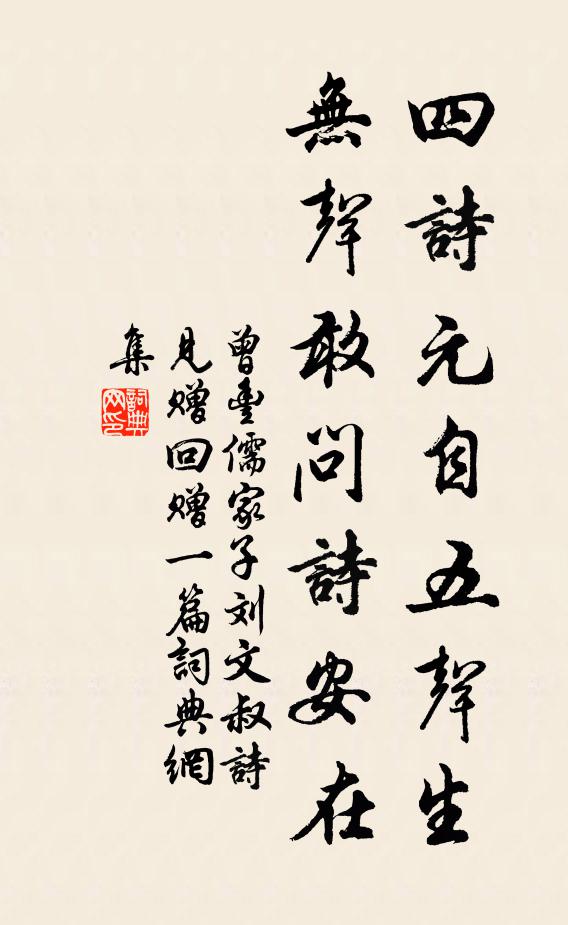 四詩元自五聲生
無聲敢問詩安在
曾豊儒家子刘文叔詩
見贈回贈一篇詞典網
集
詞典
网印